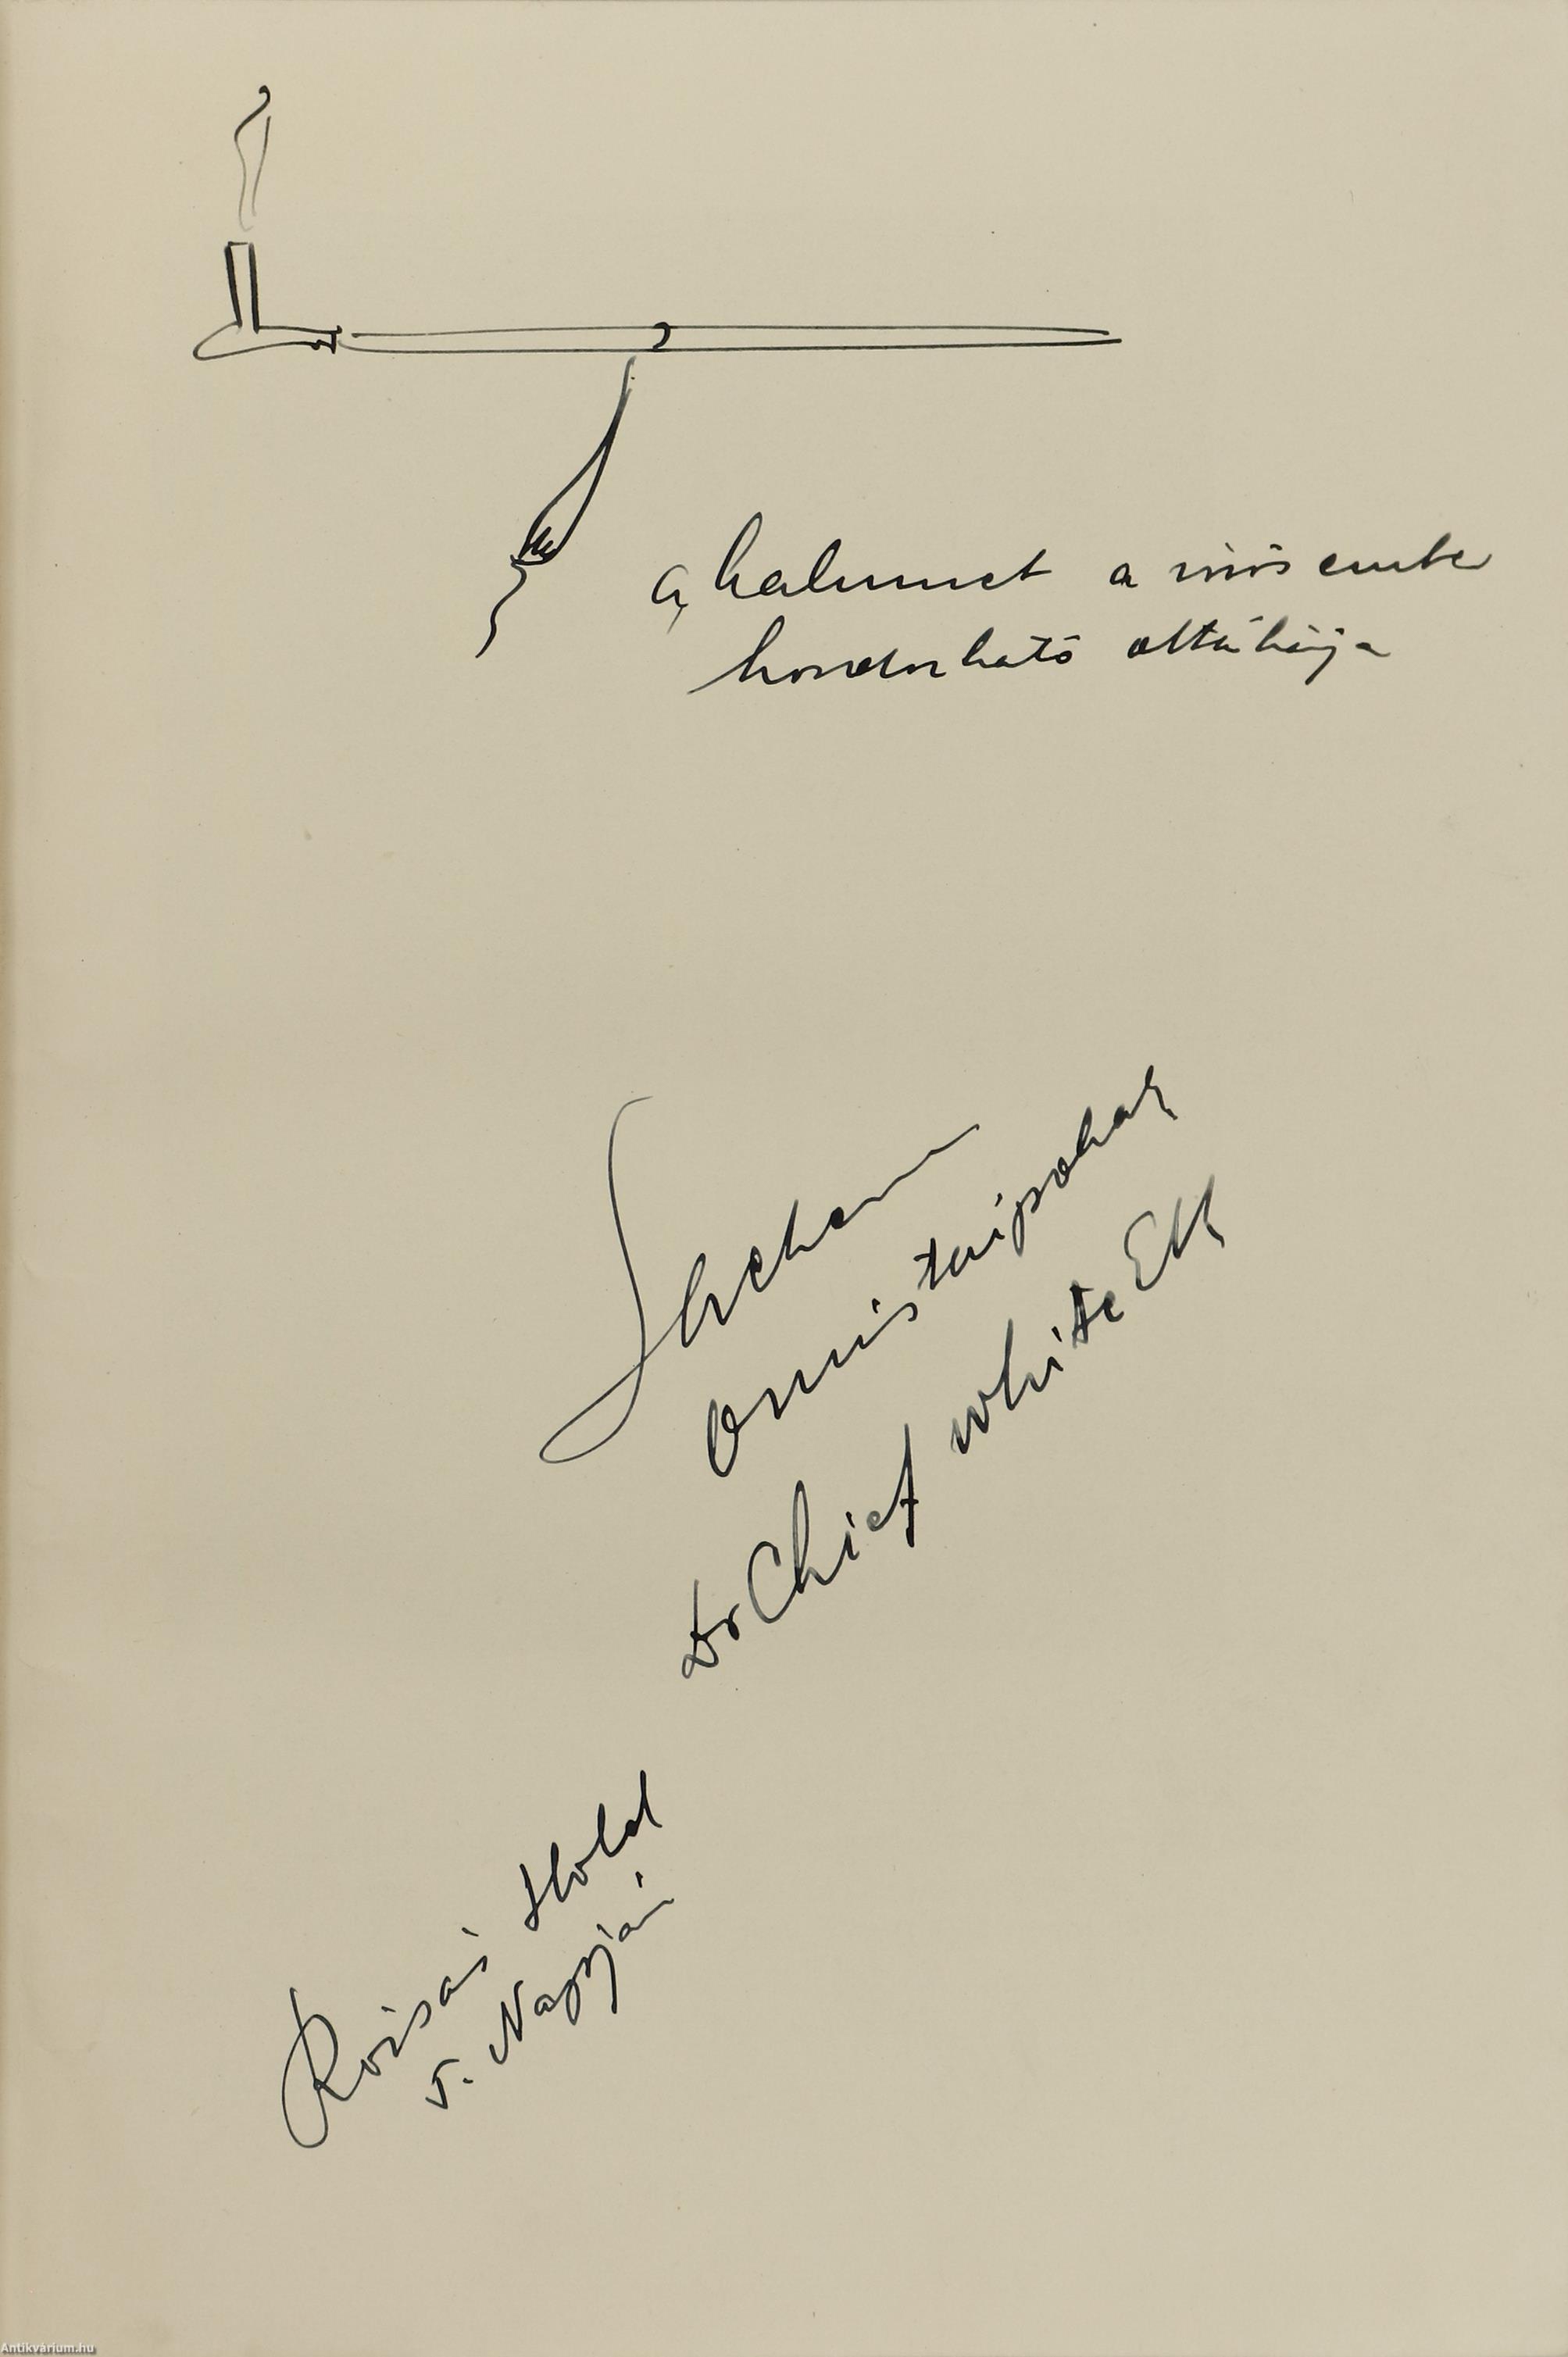 a kalumet a vörös ember
hordozható oltárkája
Sachem
Omistaipokah
Dr Chief White Elk
Rózsás Hold
v. Nagyjái
Antikvárium.hu